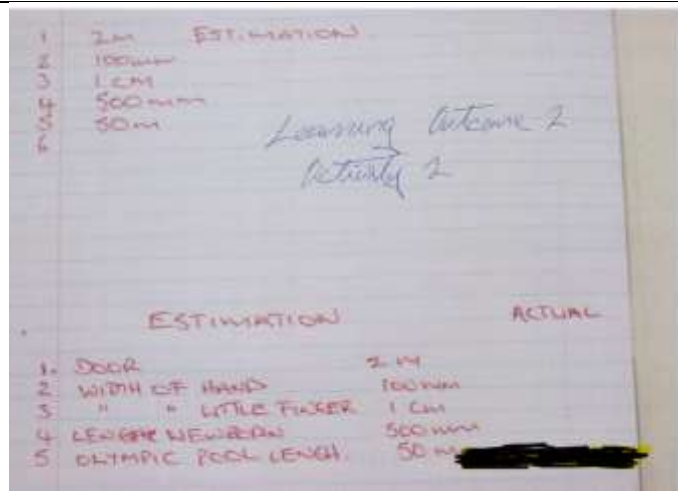 1 2m ESTIMATION
2 100mm
3 1 cm
4 500 mm
5 50m
6
Learning Outcome 2
Activity 2
ESTIMATION ACTUAL
1. DOOR 2 M
2 WIDTH OF HAND 100 mm
3 " " LITTLE FINGER 1 cm
4 NEWBORN 500 mm
5 OLYMPIC POOL LENGH. 50 m